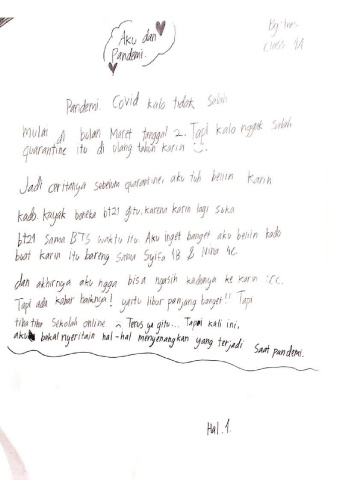 Aku dan
Pandemi.
By: Ines
Class 4A
Pandemi Covid kalo tidak salah
mulai di bulan Maret tanggal 2. Tapi kalo nggak salah
quarantine itu di ulang tahun karin
Jadi ceritanya sebelum quarantine, aku tuh beliin karin
kado. kayak boneka bt21 gitu, karena karin lagi suka
bt21 sama BTS waktu itu. Aku inget banget aku beliin kado
buat karin itu bareng sama Syifa 4B & Nina 4C.
dan akhirnya aku ngga bisa ngasih kadonya ke karin :CC.
Tapi ada kabar baiknya! yaitu libur panjang banget!! Tapi
tiba tiba sekolah online Terus ya gitu... Tapi kali ini,
aku bakal nyeritain hal-hal menyenangkan yang terjadi saat pandemi.
Hal. 1.